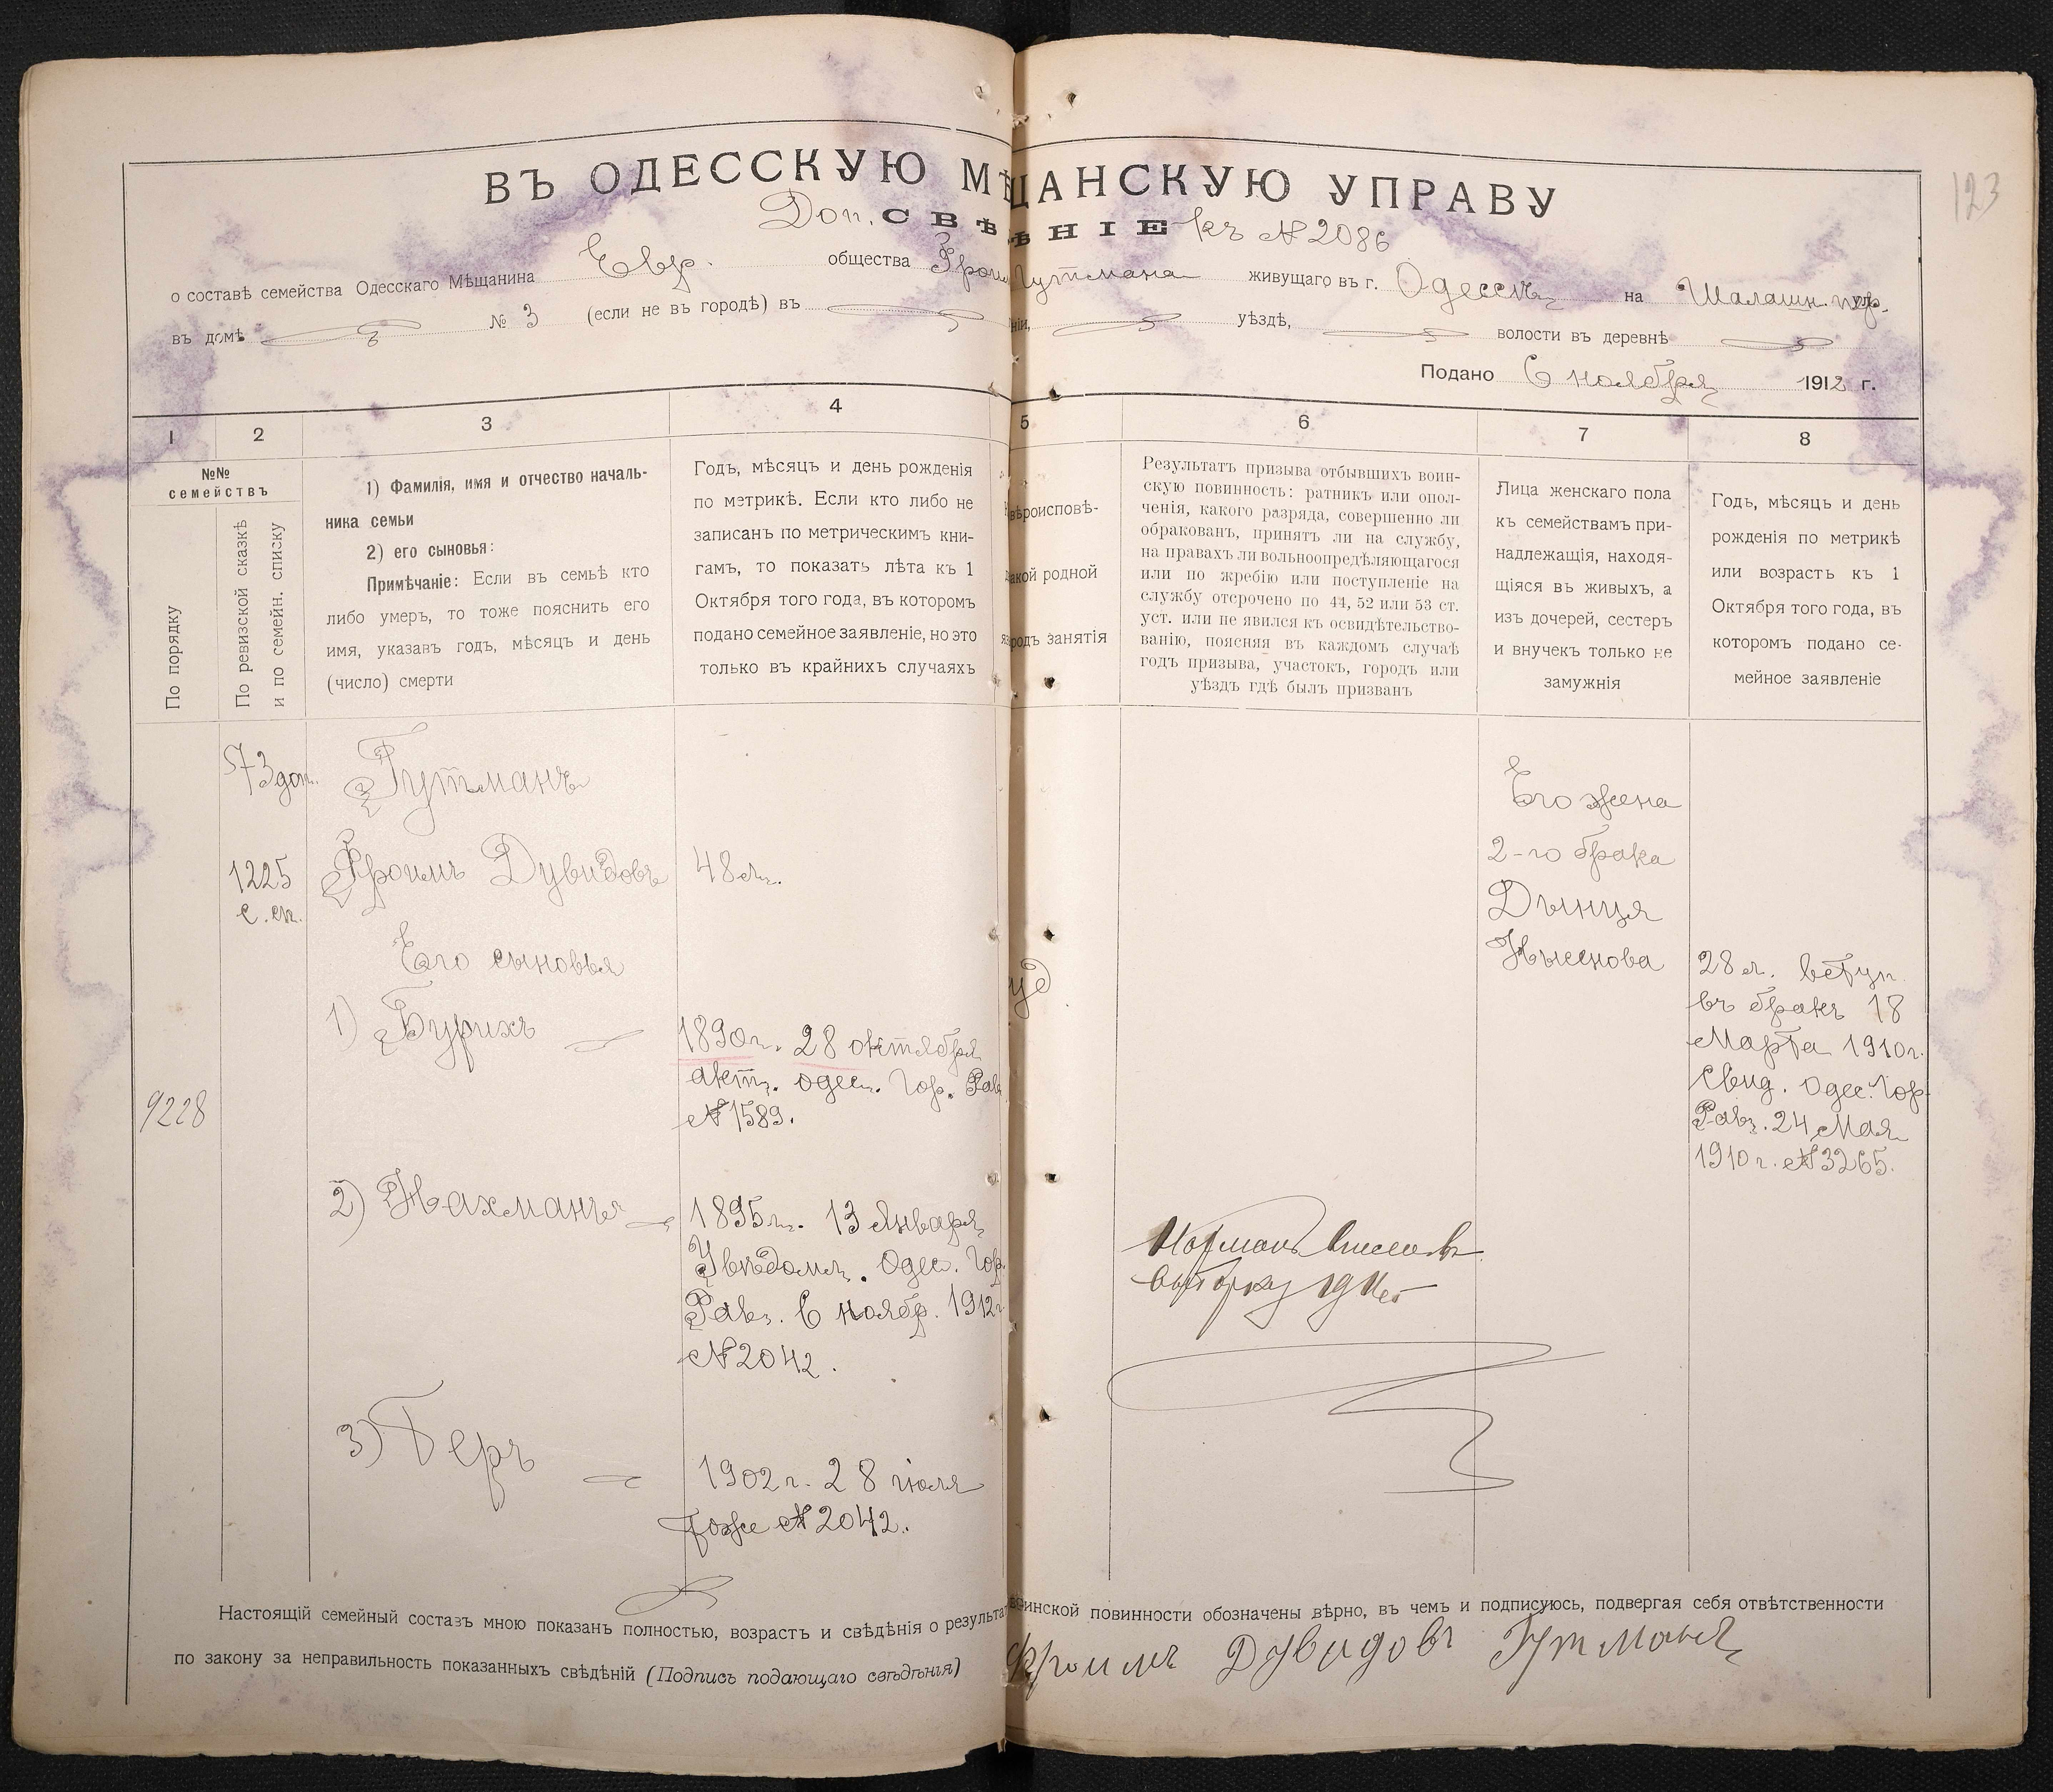 123
ВЪ ОДЕССКУЮ МѢЩАНСКУЮ УПРАВУ
Доп. СВѢ ѢНІЕ къ № 2086
о составѣ семейства Одесскаго Мѣщанина Евр. общества Фроим Гутмана живущаго въ г. Одессѣ на Шалашн. пер. ул.
въ домѣ № 3 (если не въ городѣ) въ ніи, уѣздѣ, волости въ деревнѣ
Подано 6 ноября 1912 г.
1
2
3
4
5
6
7
8
№№
семействъ
По порядку
По ревизской сказкѣ
и по семейн. списку
1) Фамилія, имя и отчество началь-
ника семьи
2) его сыновья:
Примѣчаніе: Если въ семьѣ кто
либо умеръ, то тоже пояснить его
имя, указавъ годъ, мѣсяцъ и день
(число) смерти
Годъ, мѣсяцъ и день рожденія
по метрикѣ. Если кто либо не
записанъ по метрическимъ кни-
гамъ, то показать лѣта къ 1
Октября того года, въ которомъ
подано семейное заявленіе, но это
только въ крайнихъ случаяхъ
вѣроисповѣ-
акой родной
родъ занятія
Результатъ призыва отбывшихъ воин-
скую повинность: ратникъ или опол-
ченія, какого разряда, совершенно ли
обракованъ, принятъ ли на службу,
на правахъ ли вольноопредѣляющагося
или по жребію или поступленіе на
службу отсрочено по 44, 52 или 53 ст.
уст. или не явился къ освидѣтельство-
ванію, поясняя въ каждомъ случаѣ
годъ призыва, участокъ, городъ или
уѣздъ гдѣ былъ призванъ
Лица женскаго пола
къ семействамъ при-
надлежащія, находя-
щіяся въ живыхъ, а
изъ дочерей, сестеръ
и внучекъ только не
замужнія
Годъ, мѣсяцъ и день
рожденія по метрикѣ
или возрастъ къ 1
Октября того года, въ
которомъ подано се-
мейное заявленіе
9228
573 доп.
1225
с. сп.
Гутманъ
Фроимъ Дувидовъ
48 л.
Его сыновья
1) Бурихъ
1890 г. 28 октября
акт. одес. Гор. Рав
№ 1589.
2) Нахманъ
1895 г. 13 Января
Увѣдомл. Одес. Гор.
Рав. 6 ноябр. 1912 г
№ 2042.
3) Беръ
1902 г. 28 іюля
тоже № 2042.
Его жена
2-го брака
Дынця
28 л. вступ.
въ бракъ 18
Марта 1910 г.
Свид. Одес. Гор.
Рав. 24 Мая
1910 г. № 3265.
Настоящій семейный составъ мною показанъ полностью, возрастъ и свѣдѣнія о результат воинской повинности обозначены вѣрно, въ чемъ и подписуюсь, подвергая себя отвѣтственности
по закону за неправильность показанныхъ свѣдѣній (Подпись подающаго свѣдѣнія) Фроимъ Дувидовъ Гутманъ